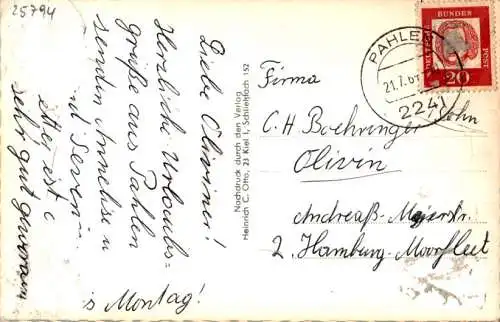 25794
Liebe Oliviner!
Herzliche Urlaubs=
grüße aus Pahlen
senden Annelise u
Wetter ist
sehr gut geworden
s Montag!
Nachdruck durch den Verlag
Heinrich C. Otto, 23 Kiel 1, Schließfach 152
PAHLEN
21.7.6
2241
DEUTSCHE
BUNDES
POST
20
Firma
C. H Boehringer Sohn
Olivin
Andreaß-Meyerstr.
2 Hamburg-Moorfleet